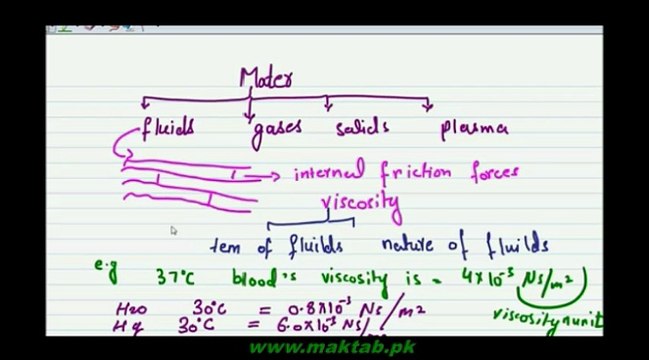 Mater
fluids gases solids plasma
internal friction forces
viscosity
tem of fluilds nature of fluilds
e.g 37°C blood's viscosity is = 4x10⁻³ Ns/m²
H2o 30°C = 0.8x10⁻³ Ns/m²
viscosity unit
Hg 30°C = 6.0x10⁻³ Ns/
www.maktab.pk